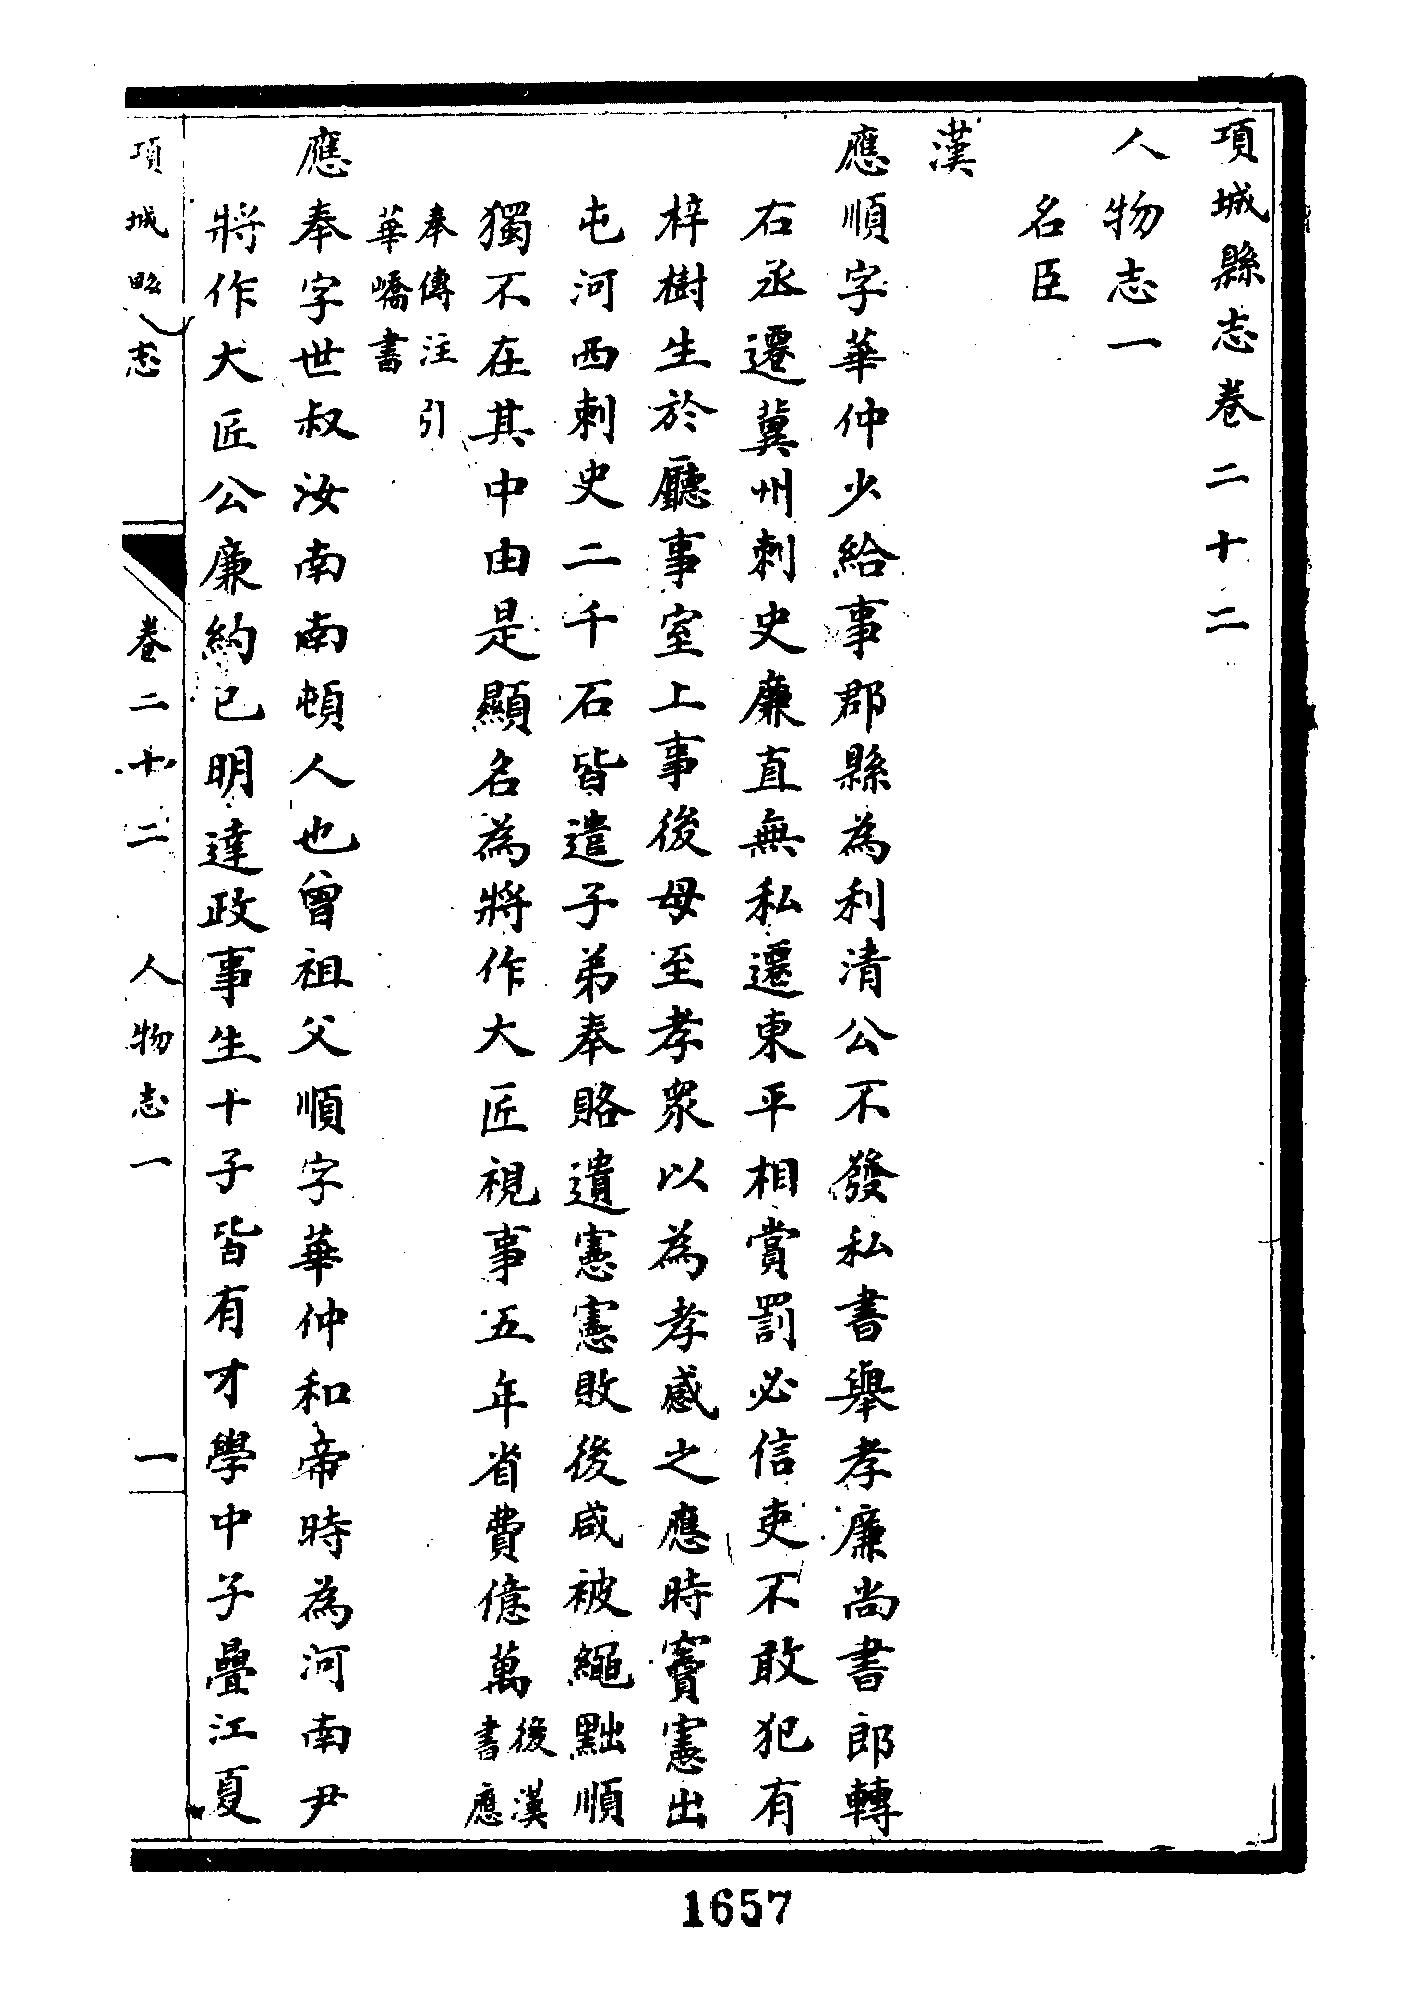 項城縣志卷二十二
人物志一
名臣
漢
應順字華仲少給事郡縣為利清公不發私書舉孝廉尚書郎轉
右丞遷冀州刺史廉直無私遷東平相賞罰必信吏不敢犯有
梓樹生於廳事室上事後母至孝衆以為孝感之應時竇憲出
屯河西刺史二千石皆遣子弟奉賂遺憲憲敗後咸被繩黜順
獨不在其中由是顯名為將作大匠視事五年省費億萬後漢
書應
奉傳注引
華嶠書
應奉字世叔汝南南頓人也曾祖父順字華仲和帝時為河南尹
將作大匠公廉約己明達政事生十子皆有才學中子疊江夏
項城縣志 卷二十二 人物志一 一
1657